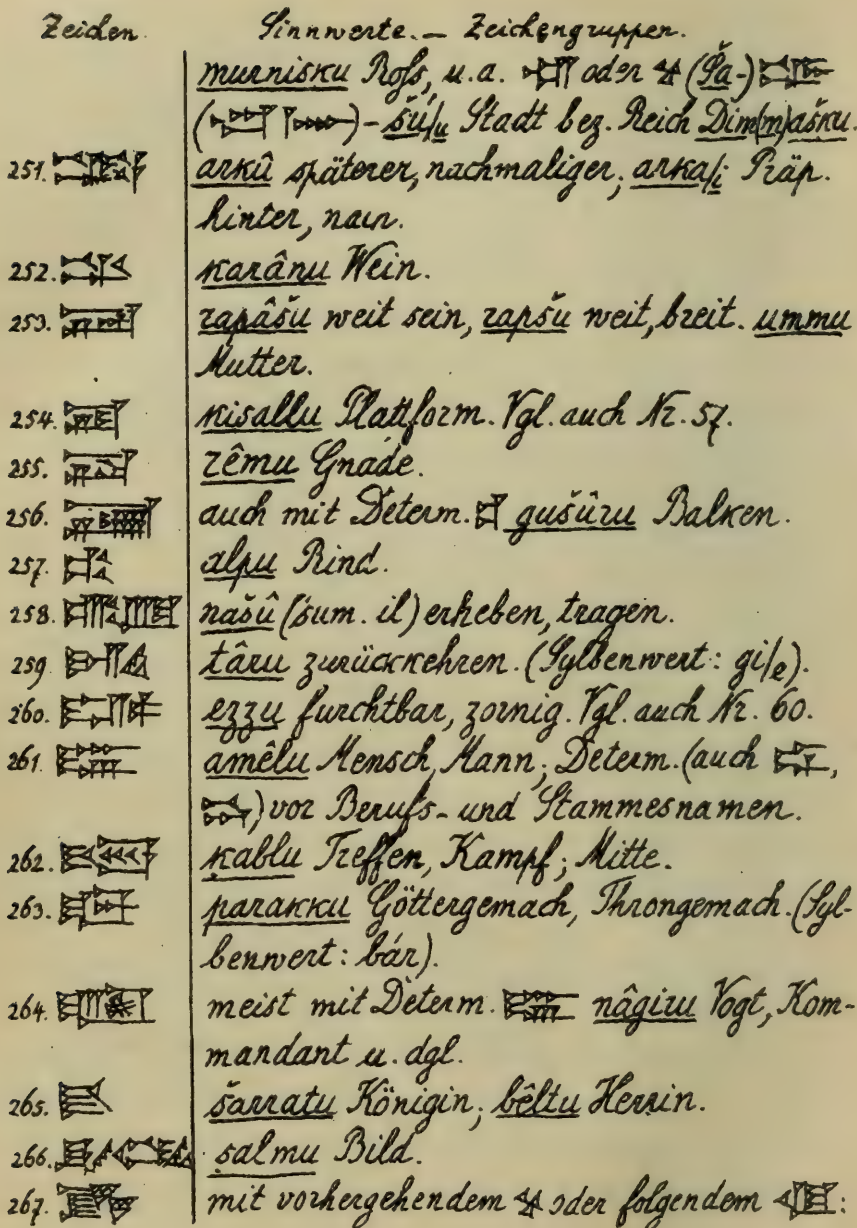 Zeichen. Sinnwerte. — Zeichengruppen.
murnisku Roß, u.a. oder (Ša-)
() - šú/u Stadt bez. Reich Dim(m)ašku.
251. arkû späterer, nachmaliger; arka/i Präp.
hinter, nach.
252. karânu Wein.
253. rapâšu weit sein, rapšu weit, breit. ummu
Mutter.
254. kisallu Plattform. Vgl. auch Nr. 57.
255. rêmu Gnade.
256. auch mit Determ. gušûru Balken.
257. alpu Rind.
258. našû (sum. il) erheben, tragen.
259. târu zurückkehren. (Sylbenwert: gi/e).
260. ezzu furchtbar, zornig. Vgl. auch Nr. 60.
261. amêlu Mensch, Mann; Determ. (auch ,
) vor Berufs- und Stammesnamen.
262. ḳablu Treffen, Kampf; Mitte.
263. parakku Göttergemach, Throngemach. (Syl-
benwert: bár).
264. meist mit Determ. nâgiru Vogt, Kom-
mandant u. dgl.
265. šarratu Königin; bêltu Herrin.
266. ṣalmu Bild.
267. mit vorhergehendem oder folgendem :